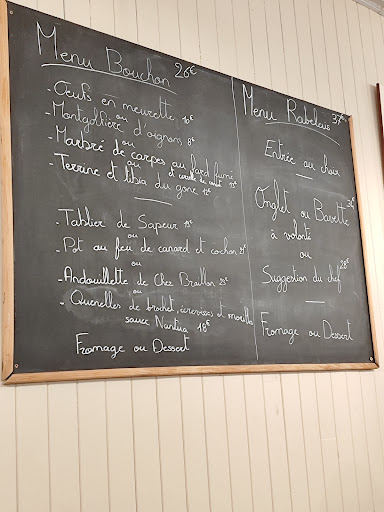 Menu Bouchon 26€
- Œufs en meurette 10€
ou
- Montgolfière d'oignons 8€
ou
- Marbré de carpes au lard fumé
ou et
- Terrine et tibia du gone 12€
- Tablier de Sapeur 19€
ou
- Pot au feu de canard et cochon 21€
ou
- Andouillette de Chez Braillon 23€
ou
- Quenelles de brochet, écrevisses et morilles
sauce Nantua 18€
Fromage ou Dessert
Menu Rabelais 37€
Entrée au choix
Onglet ou Bavette
à volonté
ou
Suggestion du chef 28€
Fromage ou Dessert